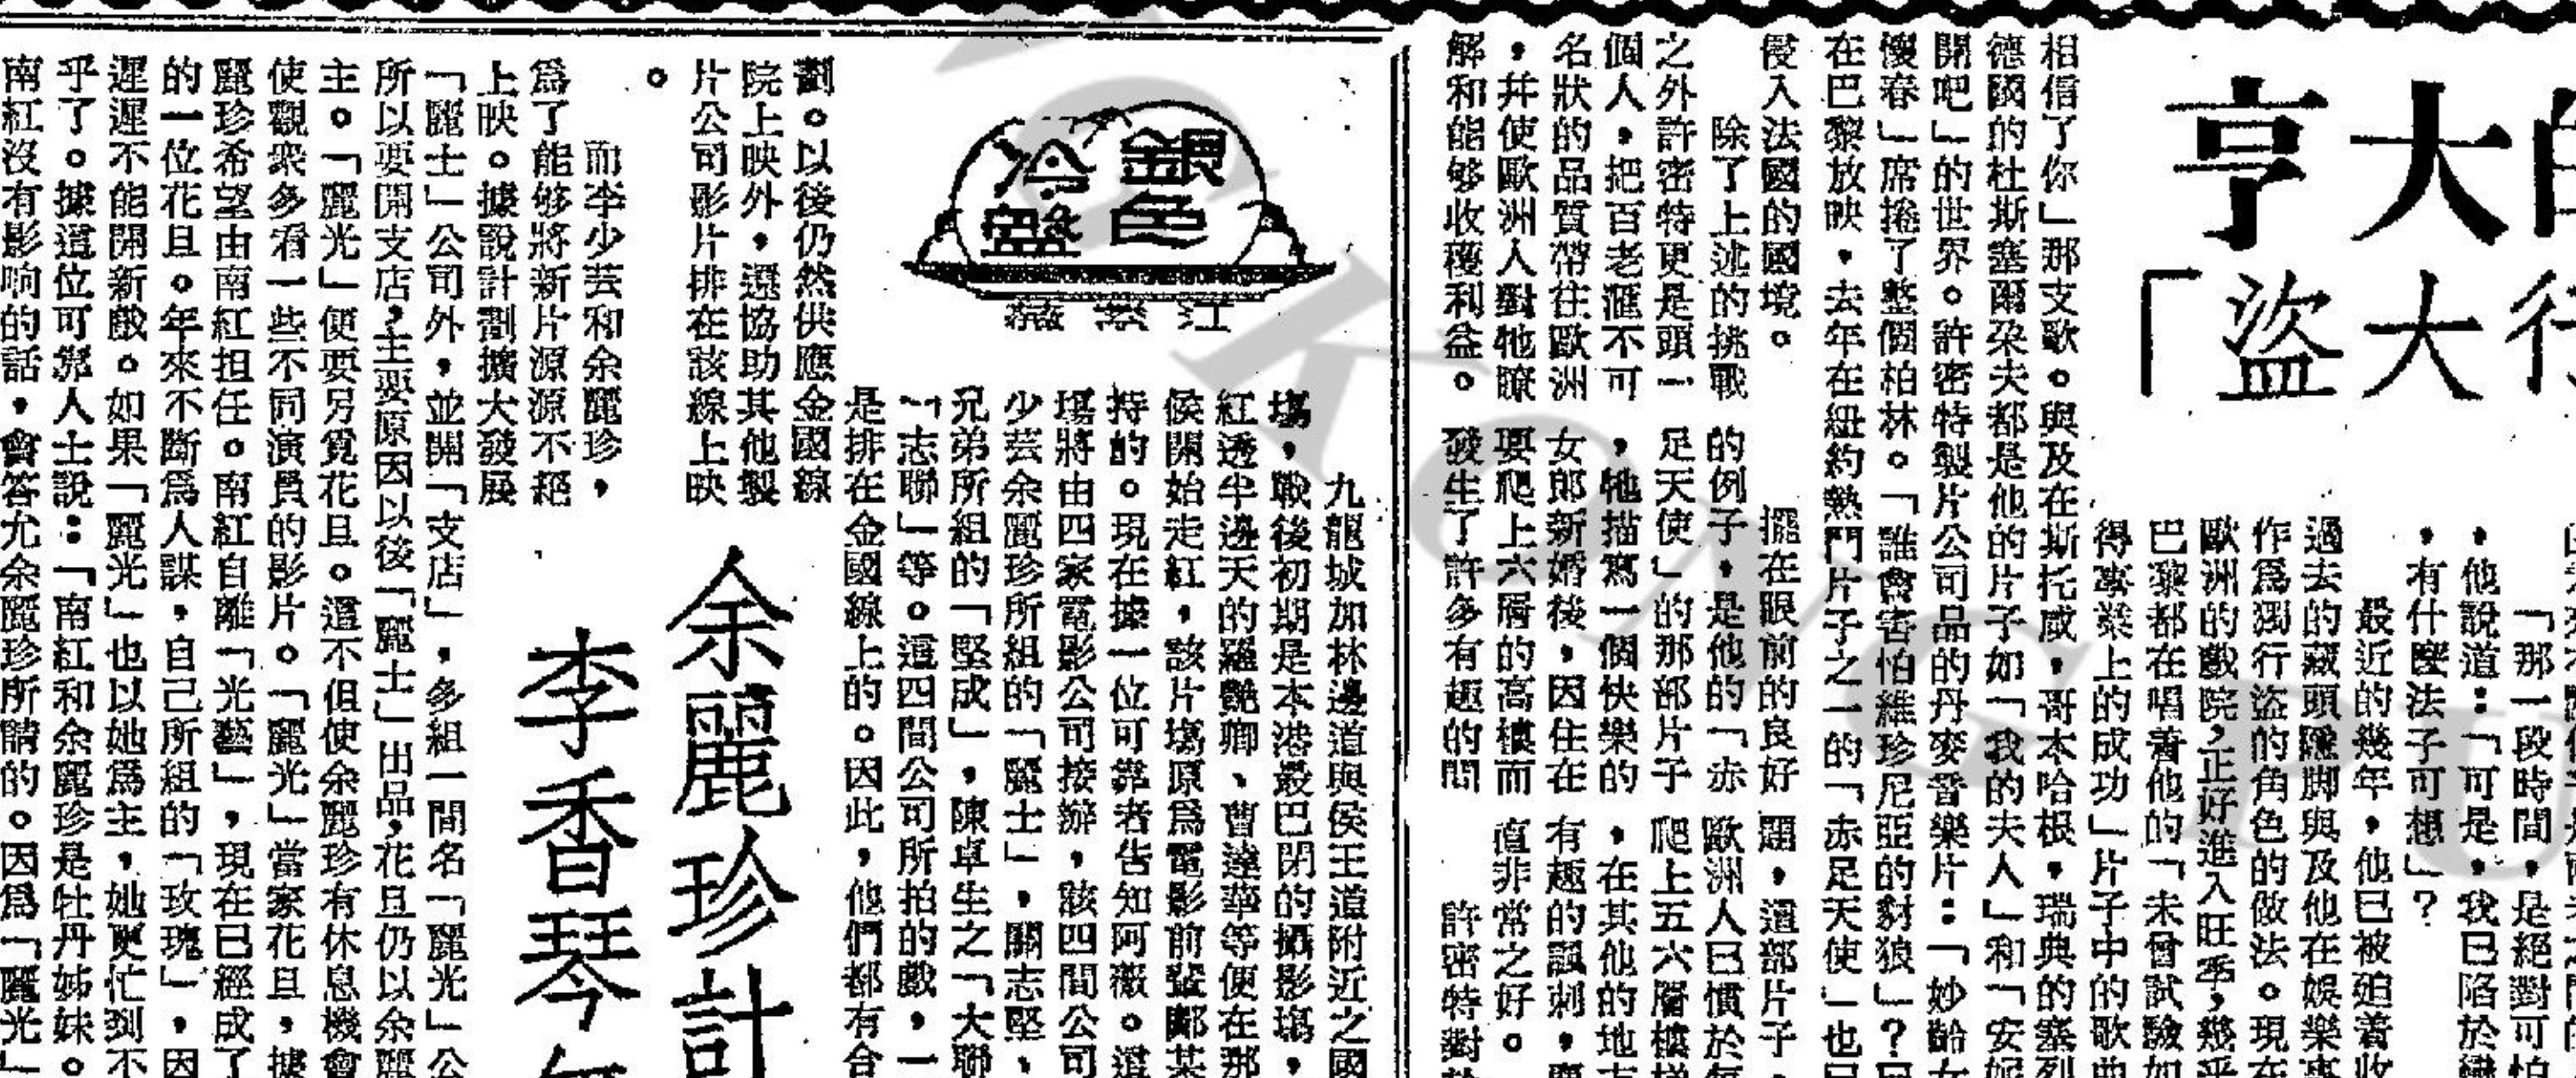 亨大的
「盜大行
「那一段時間，是絕對可怕
，他說道：「可是，我已陷於
，有什麼法子可想」？
最近的幾年，他已被廹着收
過去的藏頭隱脚與及他在娛樂事
作爲獨行盜的角色的做法。現在
歐洲的戲院，正好進入旺季，幾乎
巴黎都在唱着他的「未曾試驗如
得事業上的成功」片子中的歌曲
相信了你」那支歌。與及在斯托威，哥本哈根，瑞典的塞列
德國的杜斯塞爾朶夫都是他的片子如「我的夫人」和「安妮
開吧」的世界。許密特製片公司品的丹麥音樂片：「妙齡女
懷春」席捲了整個柏林。「誰會害怕維珍尼亞的豺狼」？
在巴黎放映，去年在紐約熱門片子之一的「赤足天使」也
侵入法國的國境。
除了上述的挑戰
之外許密特更是頭一
個人，把百老滙不可
名狀的品質帶往歐洲
，幷使歐洲人對牠瞭
解和能够收穫利益。
擺在眼前的良好
的例子，是他的「赤
足天使」的那部片子
，牠描寫一個快樂的
女郎新婚後，因住在
要爬上六層的高樓而
發生了許多有趣的問
題，這部片子，
歐洲人已慣於每
爬上五六層樓梯
，在其他的地方
有趣的諷刺，
直非常之好。
許密特對於
銀色
冷盤
余麗珍計
李香琴
九龍城加林邊道與侯王道附近之國
塲，戰後初期是本港最巴閉的攝影塲，
紅透半邊天的羅艷卿、曹達華等便在那
侯開始走紅，該片塲原爲電影前輩鄺某
持的。現在據一位可靠者告知阿薇。這
塲將由四家電影公司接辦，該四間公司
少芸余麗珍所組的「麗士」，關志堅、
兄弟所組的「堅成」，陳卓生之「大聯
「志聯」等。這四間公司所拍的戲，一
是排在金國線上的。因此，他們都有合
劃。以後仍然供應金國線
院上映外，還協助其他製
片公司影片排在該線上映
。
而李少芸和余麗珍，
爲了能够將新片源源不絕
上映。據說計劃擴大發展
「麗士」公司外，並開「支店」，多組一間名「麗光」公
所以要開支店，主要原因以後「麗士」出品，花旦仍以余麗
主。「麗光」便要另覓花旦。這不但使余麗珍有休息機會
使觀衆多看一些不同演員的影片。「麗光」當家花旦，據
麗珍希望由南紅担任。南紅自離「光藝」，現在已經成了
的一位花旦。年來不斷爲人謀，自己所組的「玫瑰」，因
遲遲不能開新戲。如果「麗光」也以她爲主，她更忙到不
乎了。據這位可靠人士說：「南紅和余麗珍是牡丹姊妹。
南紅沒有影响的話，會答允余麗珍所請的。因爲「麗光」